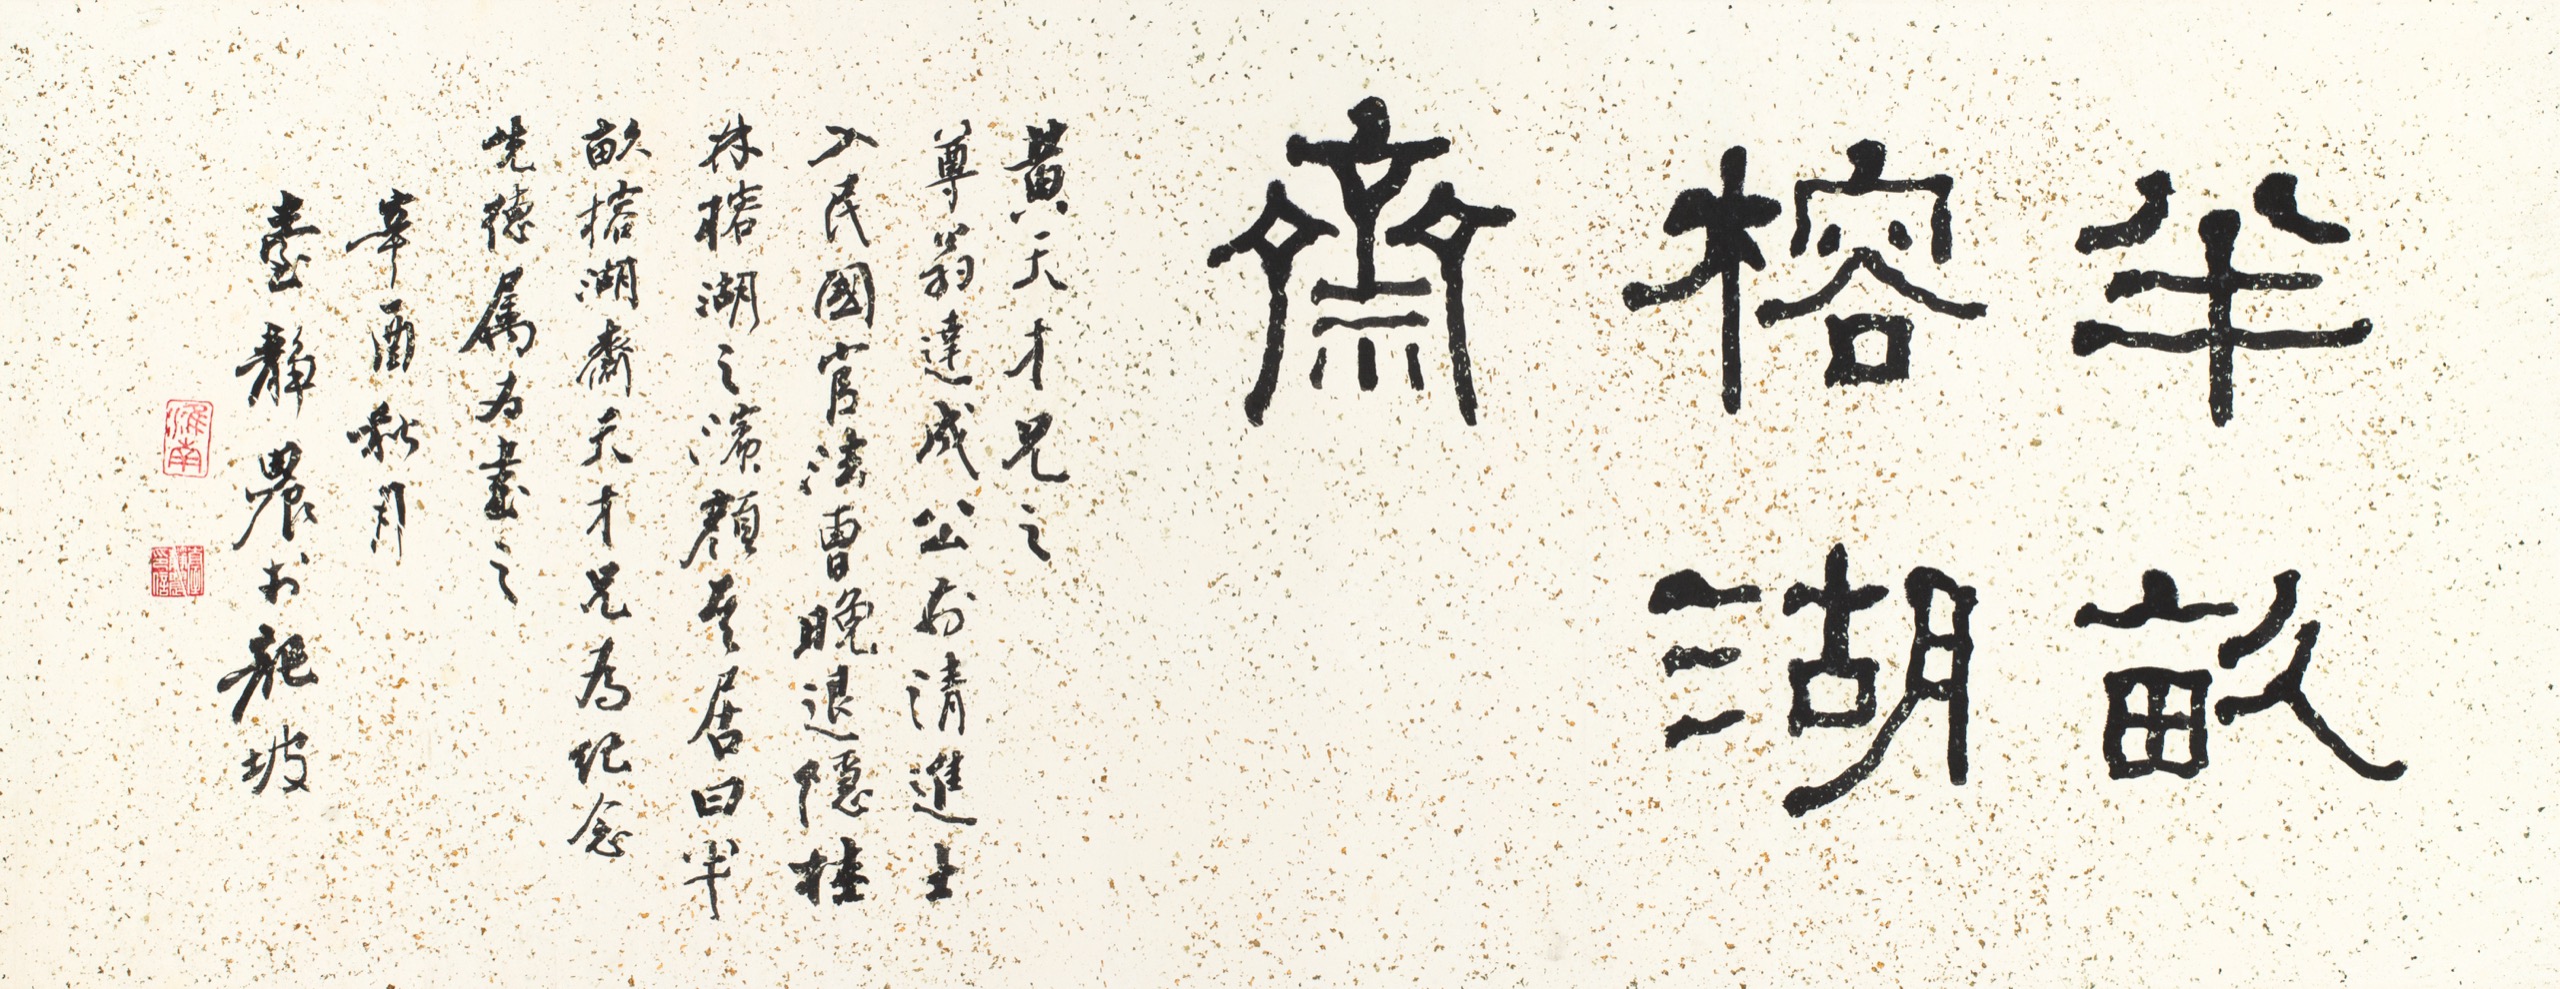 半畝
榕湖
齋
黃天才兄之
尊翁達成公於清進士
入民國官法曹晚退隱桂
林榕湖之濱顏其居曰半
畝榕湖齋天才兄為紀念
先德属為書之
辛酉秋月
臺靜農於龍坡
淮南